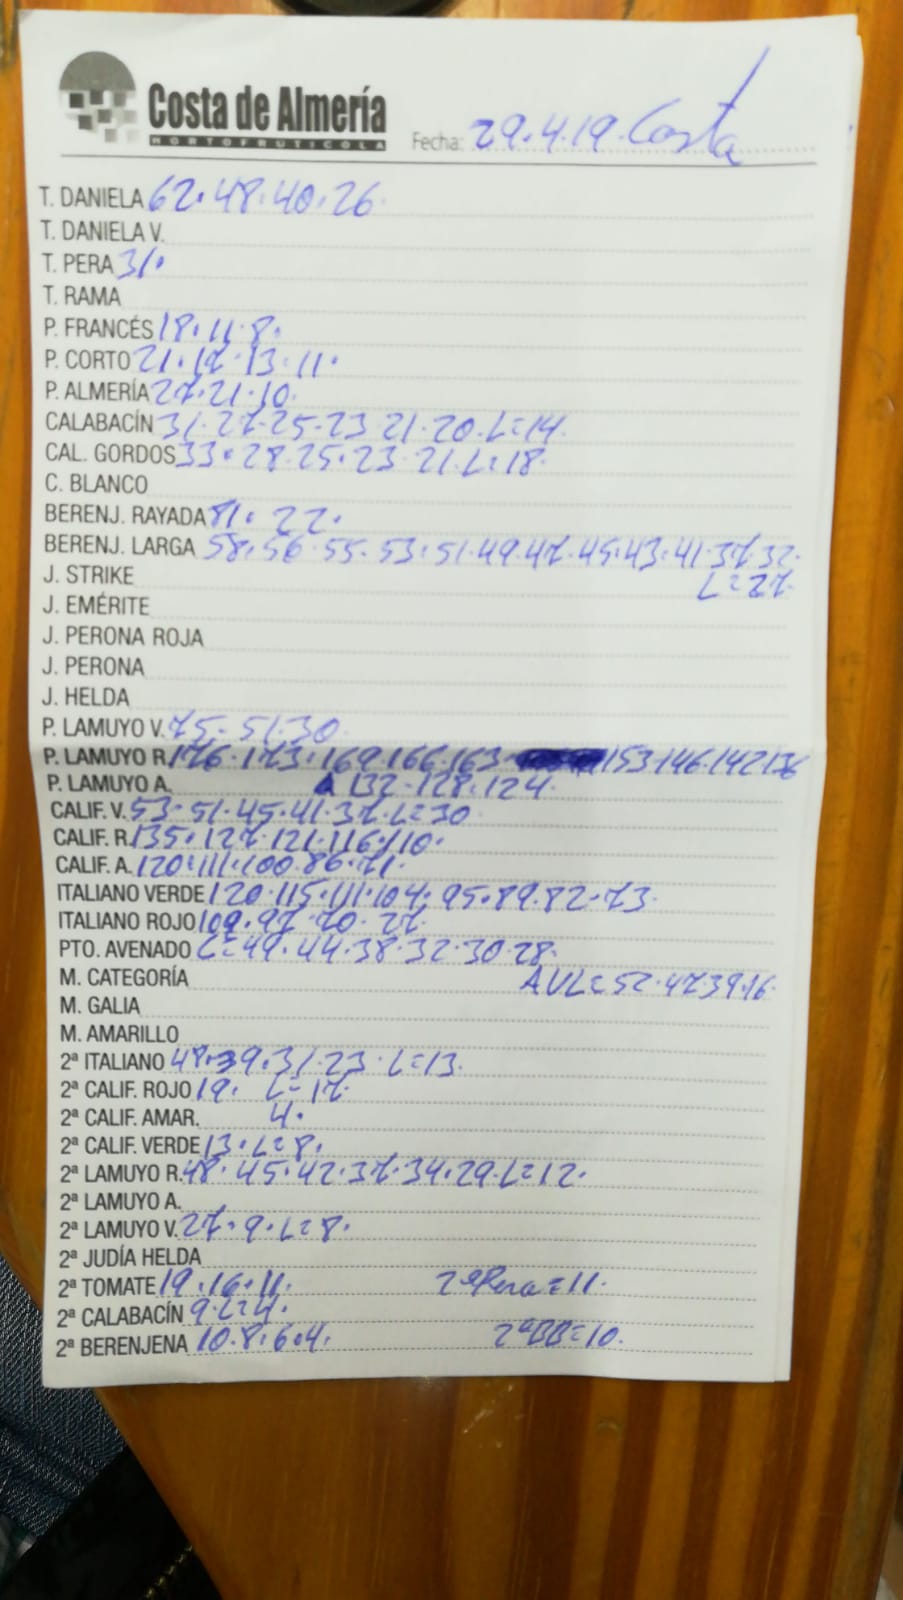 Costa de Almería
HORTOFRUTICOLA
Fecha: 29.4.19. Costa
T. DANIELA 62.48.40.26.
T. DANIELA V.
T. PERA 31.
T. RAMA
P. FRANCÉS 18.11.8.
P. CORTO 21.17.13.11.
P. ALMERÍA 27.21.10.
CALABACÍN 31.27.25.23.21.20.L=14.
CAL. GORDOS 33.28.25.23.21.L=18.
C. BLANCO
BERENJ. RAYADA 81.22.
BERENJ. LARGA 58.56.55.53.51.49.47.45.43.41.37.32.
L=27.
J. STRIKE
J. EMÉRITE
J. PERONA ROJA
J. PERONA
J. HELDA
P. LAMUYO V. 75.51.30
P. LAMUYO R. 176.173.169.166.163. 153.146.142.136
P. LAMUYO A. 132.128.124.
CALIF. V. 53.51.45.41.37.L=30
CALIF. R. 135.127.121.116.110.
CALIF. A. 120.111.100.86.71.
ITALIANO VERDE 120.115.111.104.95.89.82.73.
ITALIANO ROJO 109.97.70.27.
PTO. AVENADO L=49.44.38.32.30.28.
M. CATEGORÍA AVL=52.47.39.16.
M. GALIA
M. AMARILLO
2ª ITALIANO 48.39.31.23.L=13.
2ª CALIF. ROJO 19. L=17.
2ª CALIF. AMAR. 4.
2ª CALIF. VERDE 13.L=8.
2ª LAMUYO R. 48.45.42.37.34.29.L=12.
2ª LAMUYO A.
2ª LAMUYO V. 27.9.L=8.
2ª JUDÍA HELDA
2ª TOMATE 19.16.11. 2ª Pera=11.
2ª CALABACÍN 9.L=4.
2ª BERENJENA 10.8.6.4. 2ªBB=10.